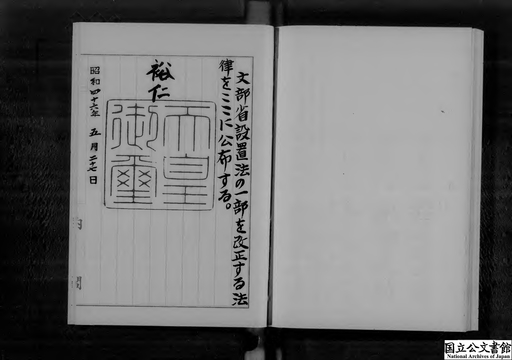 文部省設置法の一部を改正する法
律をここに公布する。
裕仁
天皇
御璽
昭和四十六年 五月二十七日
国立公文書館
National Archives of Japan